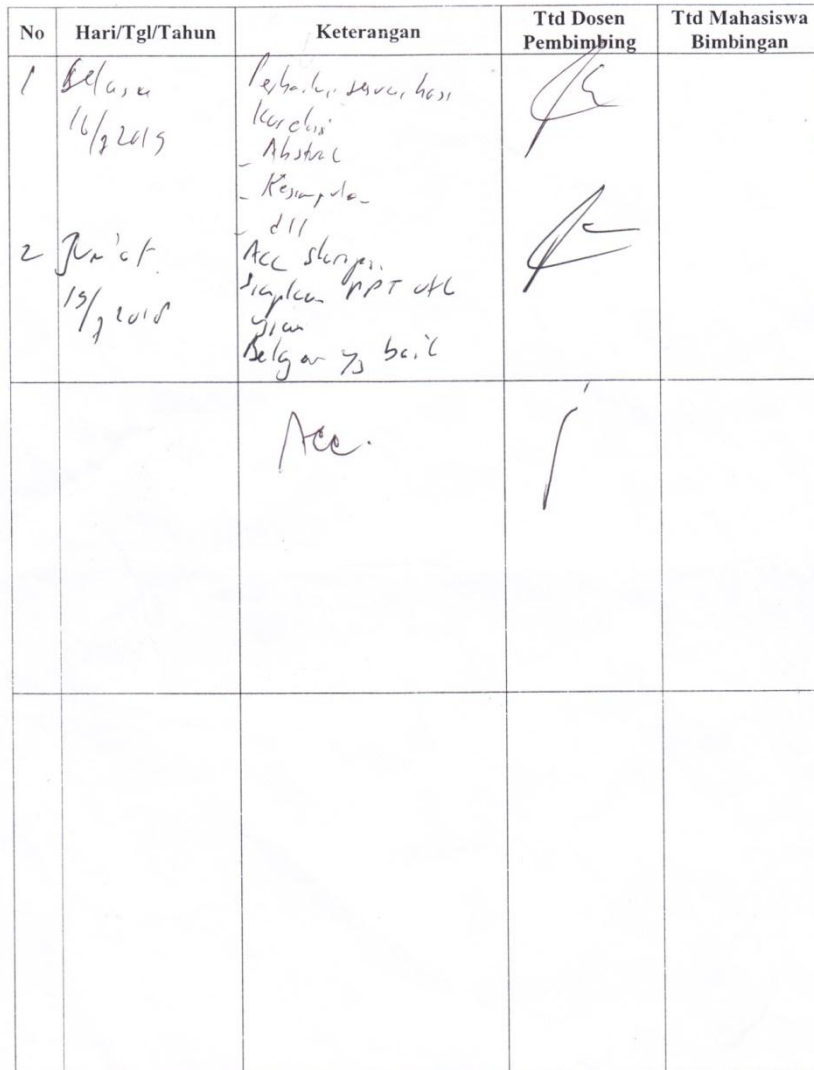 No Hari/Tgl/Tahun Keterangan Ttd Dosen Pembimbing Ttd Mahasiswa Bimbingan
1 Selasa
16/7 2019
Perbaiki sesuai hasil
koreksi
- Abstrac
- Kesimpulan
- dll
2 Jum'at
19/7
Acc skripsi.
Siapkan PPT utk
ujian
Belajar yg baik
Acc.